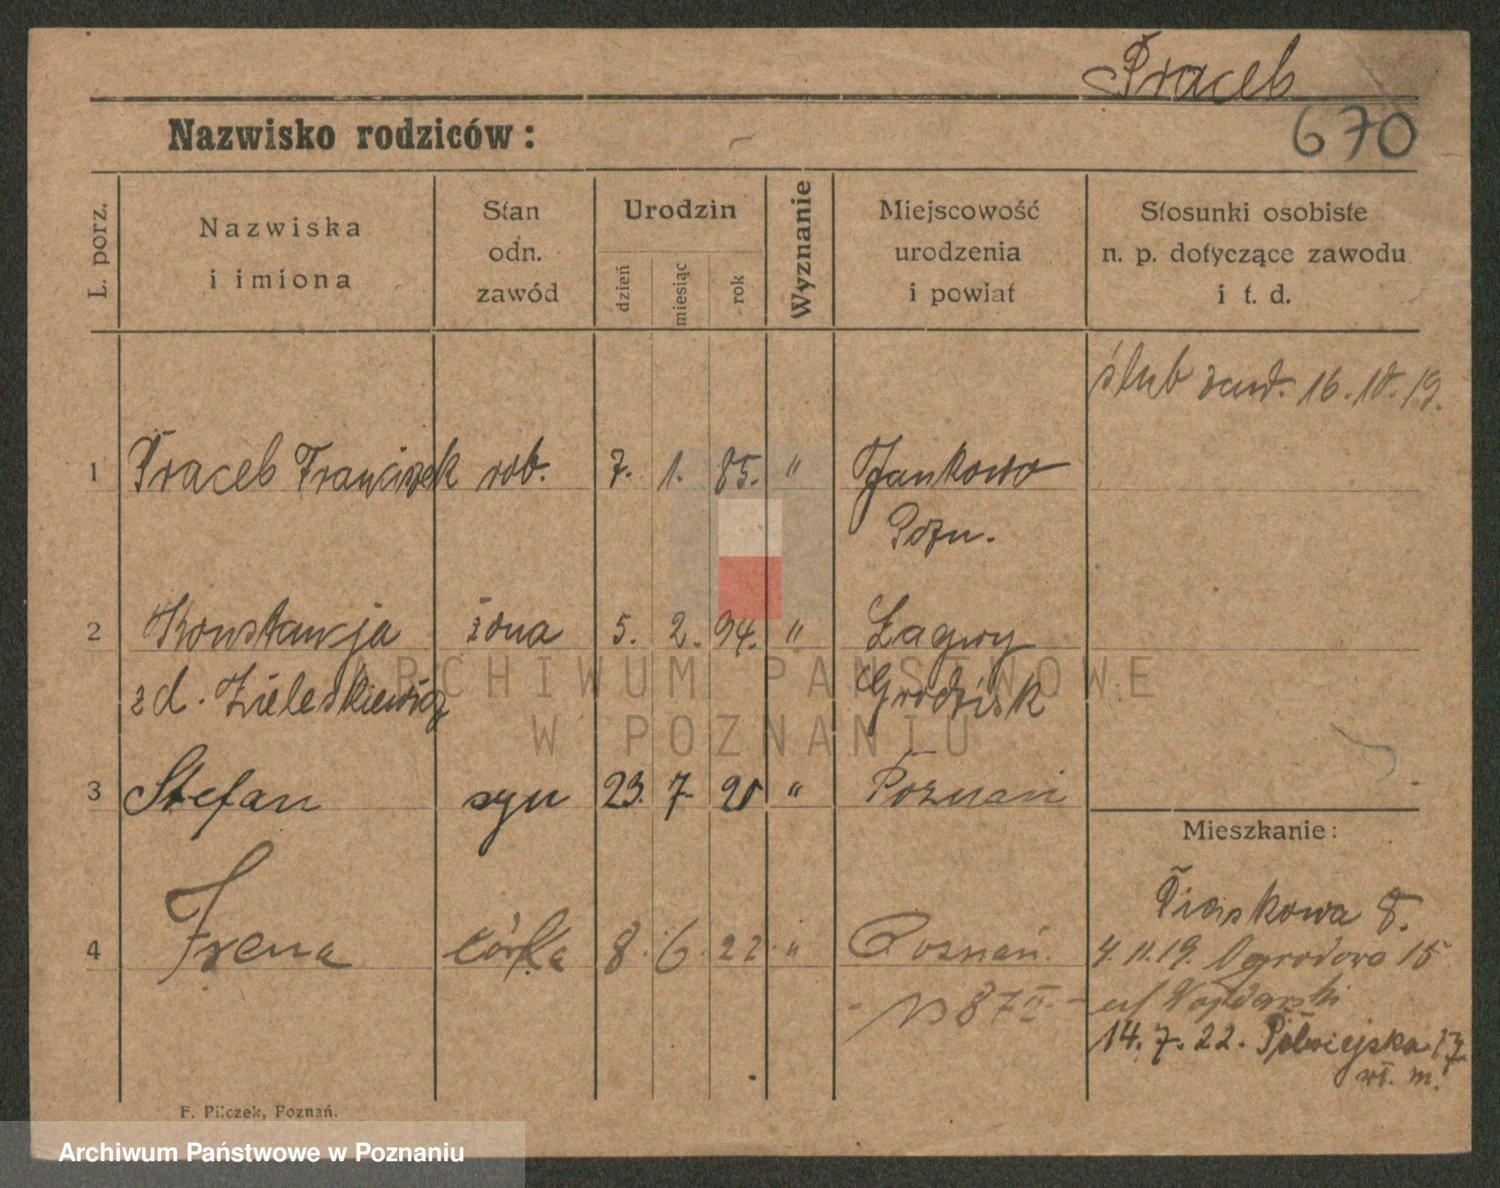 Praceb
Nazwisko rodziców:
670
L. porz.
Nazwiska
i imiona
Stan
odn.
zawód
Urodzin
dzień
miesiąc
rok
Wyznanie
Miejscowość
urodzenia
i powiat
Stosunki osobiste
n. p. dotyczące zawodu
i t. d.
ślub zawd. 16.10.19.
1 Praceb Franciszek rob. 7. 1. 85. " Jankowo
Pozn.
2 Konstancja żona 5. 2. 94. " Łagwy
zd. Grodzisk
ARCHIWUM PAŃSTWOWE
W POZNANIU
3 Stefan syn 23. 7. 20 " Poznań
Mieszkanie:
Piaskowa 8.
4 Irena córka 8. 6. 22 " Poznań.
4.11.19. Ogrodowa 15
14.7.22. Półwiejska 17
F. Pilczek, Poznań.
Archiwum Państwowe w Poznaniu